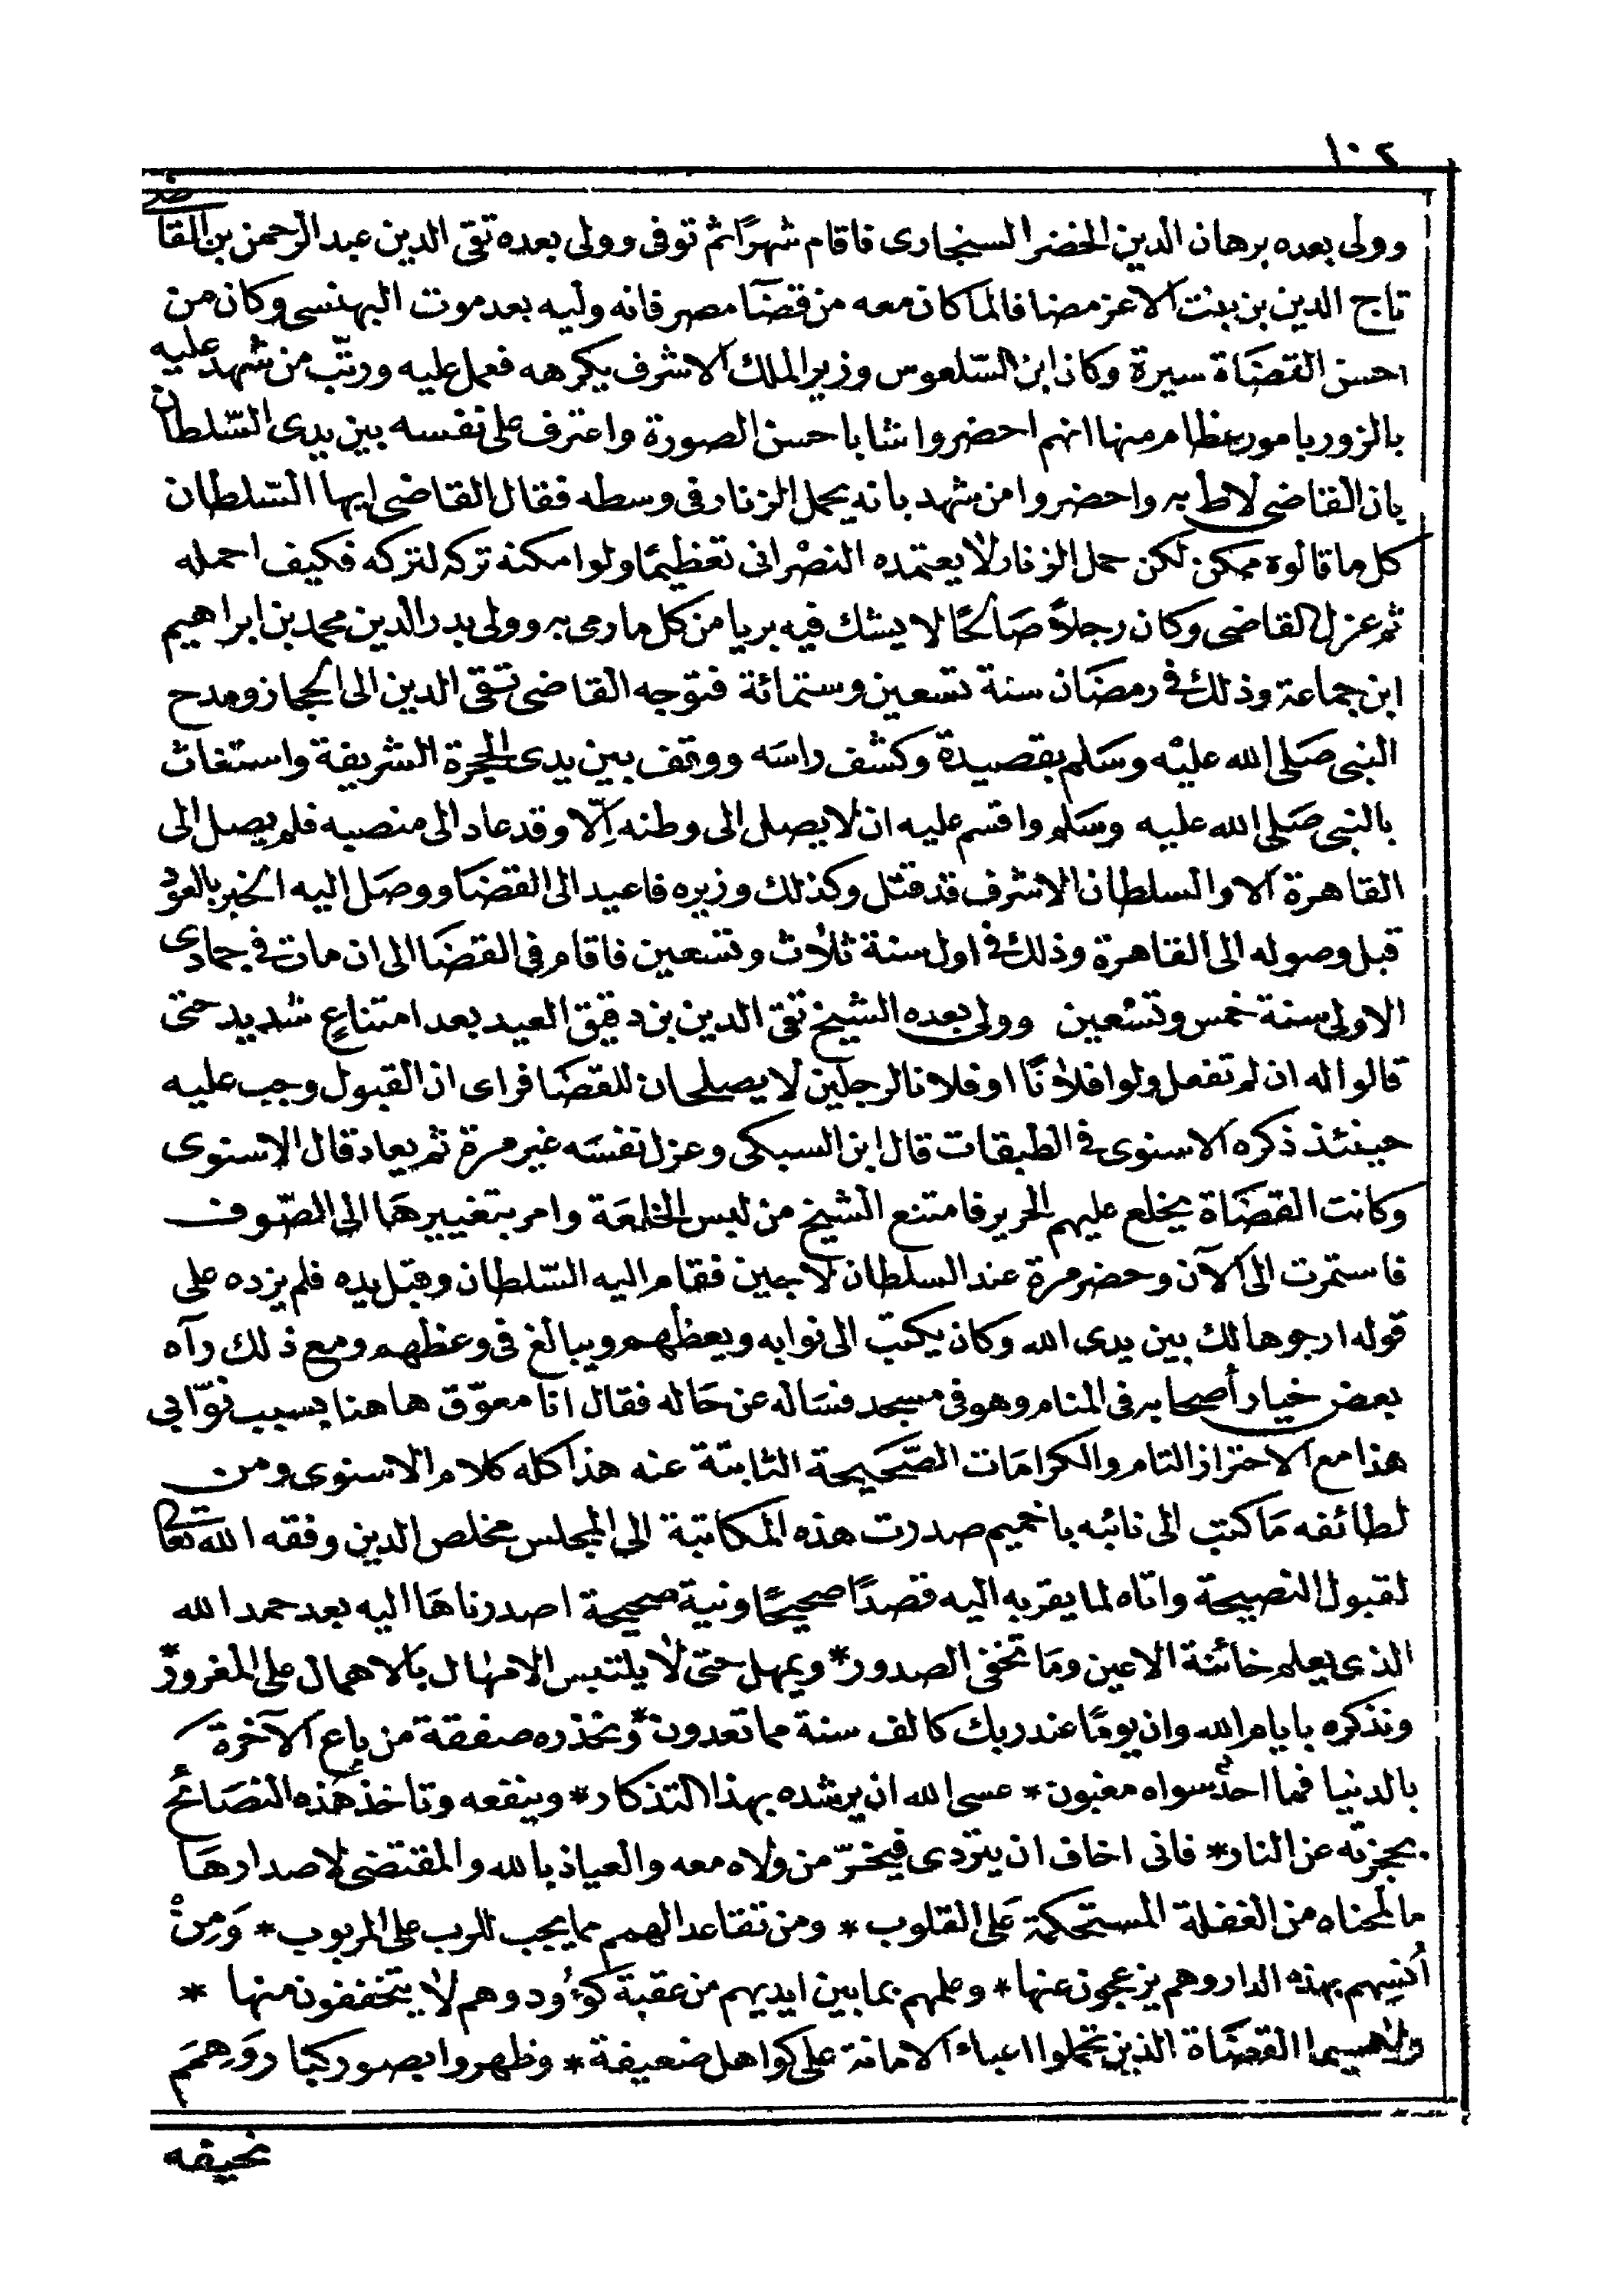 ١٠٢
وولى بعده برهان الدين الخضر السنجارى فاقام شهرًا ثم توفى وولى بعده تقى الدين عبد الرحمن بن القاضى
تاج الدين بن بنت الاعز مضافا لما كان معه من قضَا مصر فانه وليه بعد موت البهنسى وكان من
احسن القضَاة سيرة وكان ابن السّلعوس وزير الملك الاشرف يكرهه فعمل عليه ورتّب من شهد عليه
بالزور بامور عظام منها انهم احضروا شابا حسن الصورة واعترف على نفسه بين يدى السّلطان
بان القاضى لاط به واحضروا من شهد بانه يحمل الزنار فى وسطه فقال القاضى ايها السّلطان
كل ما قالوه ممكن لكن حمل الزنار لا يعتمده النصْرانى تعظيمًا ولو امكنه تركه لتركه فكيف احمله
ثم عزل القاضى وكان رجلاً صَالحًا لا يشك فيه بريا من كل ما رمى به وولى بدر الدين محمد بن ابراهيم
ابن جماعة وذلك فى رمضَان سنة تسعين وستمائة فتوجه القاضى تقى الدين الى الحجاز ومدح
النبى صَلى الله عليْه وسَلم بقصيدة وكشف راسَه ووقف بين يدى الحجرة الشريفة واستغاث
بالنبى صَلى الله عليه وسَلم واقسم عليه ان لا يصل الى وطنه اِلّا وقد عاد الى منصبه فلم يصل الى
القاهرة الا والسلطان الاشرف قد قتل وكذلك وزيره فاعيد الى القضَا ووصَل اليه الخبر بالعود
قبل وصوله الى القاهرة وذلك فى اول سنة ثلاث وتسعين فاقام فى القضَا الى ان مات فى جمادى
الاولى سنة خمس وتسْعين وولى بعده الشيخ تقى الدين بن دقيق العيد بعد امتناعٍ شديد حتى
قالوا له ان لم تفعل ولوا فلانًا او فلانا لرجلين لا يصلحان للقضَا فراى ان القبول وجب عليه
حينئذ ذكره الاسنوى فى الطبقات قال ابن السبكى وعزل نفسَه غير مرة ثم يعاد قال الاسنوى
وكانت القضَاة يخلع عليهم الحرير فامتنع الشيخ من لبس الخلعَة وامر بتغييرهَا الى الصّوف
فاستمرت الى الآن وحضر مرة عند السلطان لاجين فقام اليه السّلطان وقبل يده فلم يزده على
قوله ارجوها لك بين يدى الله وكان يكتب الى نوابه ويعظهم ويبالغ فى وعظهم ومع ذلك رآه
بعض خيار أصحابه فى المنام وهو فى مسجد فسَاله عن حَاله فقال انا معوّق هاهنا بسبب نوّابى
هذا مع الاحتراز التام والكرامَات الصّحَيحة الثابتة عنه هذا كله كلام الاسنوى ومن
لطائفه مَا كتب الى نائبه باخميم صدرت هذه المكاتبة الى المجلس مخلص الدين وفقه الله تعالى
لقبول النصيحة واتاه لما يقربه اليه قصدًا صحيحًا ونية صحيحة اصدرناهَا اليه بعد حمد الله
الذى يعلم خائنة الاعين ومَا تخفى الصدور* ويمهل حتى لا يلتبس الامهال بالاهمال على المغرور*
ونذكره بايام الله وان يومًا عند ربك كالف سنة مما تعدون* ونحذره صفقة من باع الآخرة
بالدنيا فما احدٌ سواه مغبون* عسى الله ان يرشده بهذا التذكار* وينفعه وتاخذ هَذه النصَائح
بحجزته عن النار* فانى اخاف ان يتردى فيخرّ من ولاه معه والعياذ بالله والمقتضى لاصدارهَا
ما لمحناه من الغفلة المستحكمة عَلى القلوب* ومن تقاعد الهمم مما يجب للرب على المربوب* وَمِنْ
أُنسِهم بهذه الدار وهم يزعجون عنها* وعلمهم بما بين ايديهم من عقبة كؤُود وهم لا يتخففون منها*
ولا سيما القضَاة الذين تحملوا اعباء الامانة على كواهل ضعيفة* وظهروا بصور كبار وَهِمَم
نحيفه